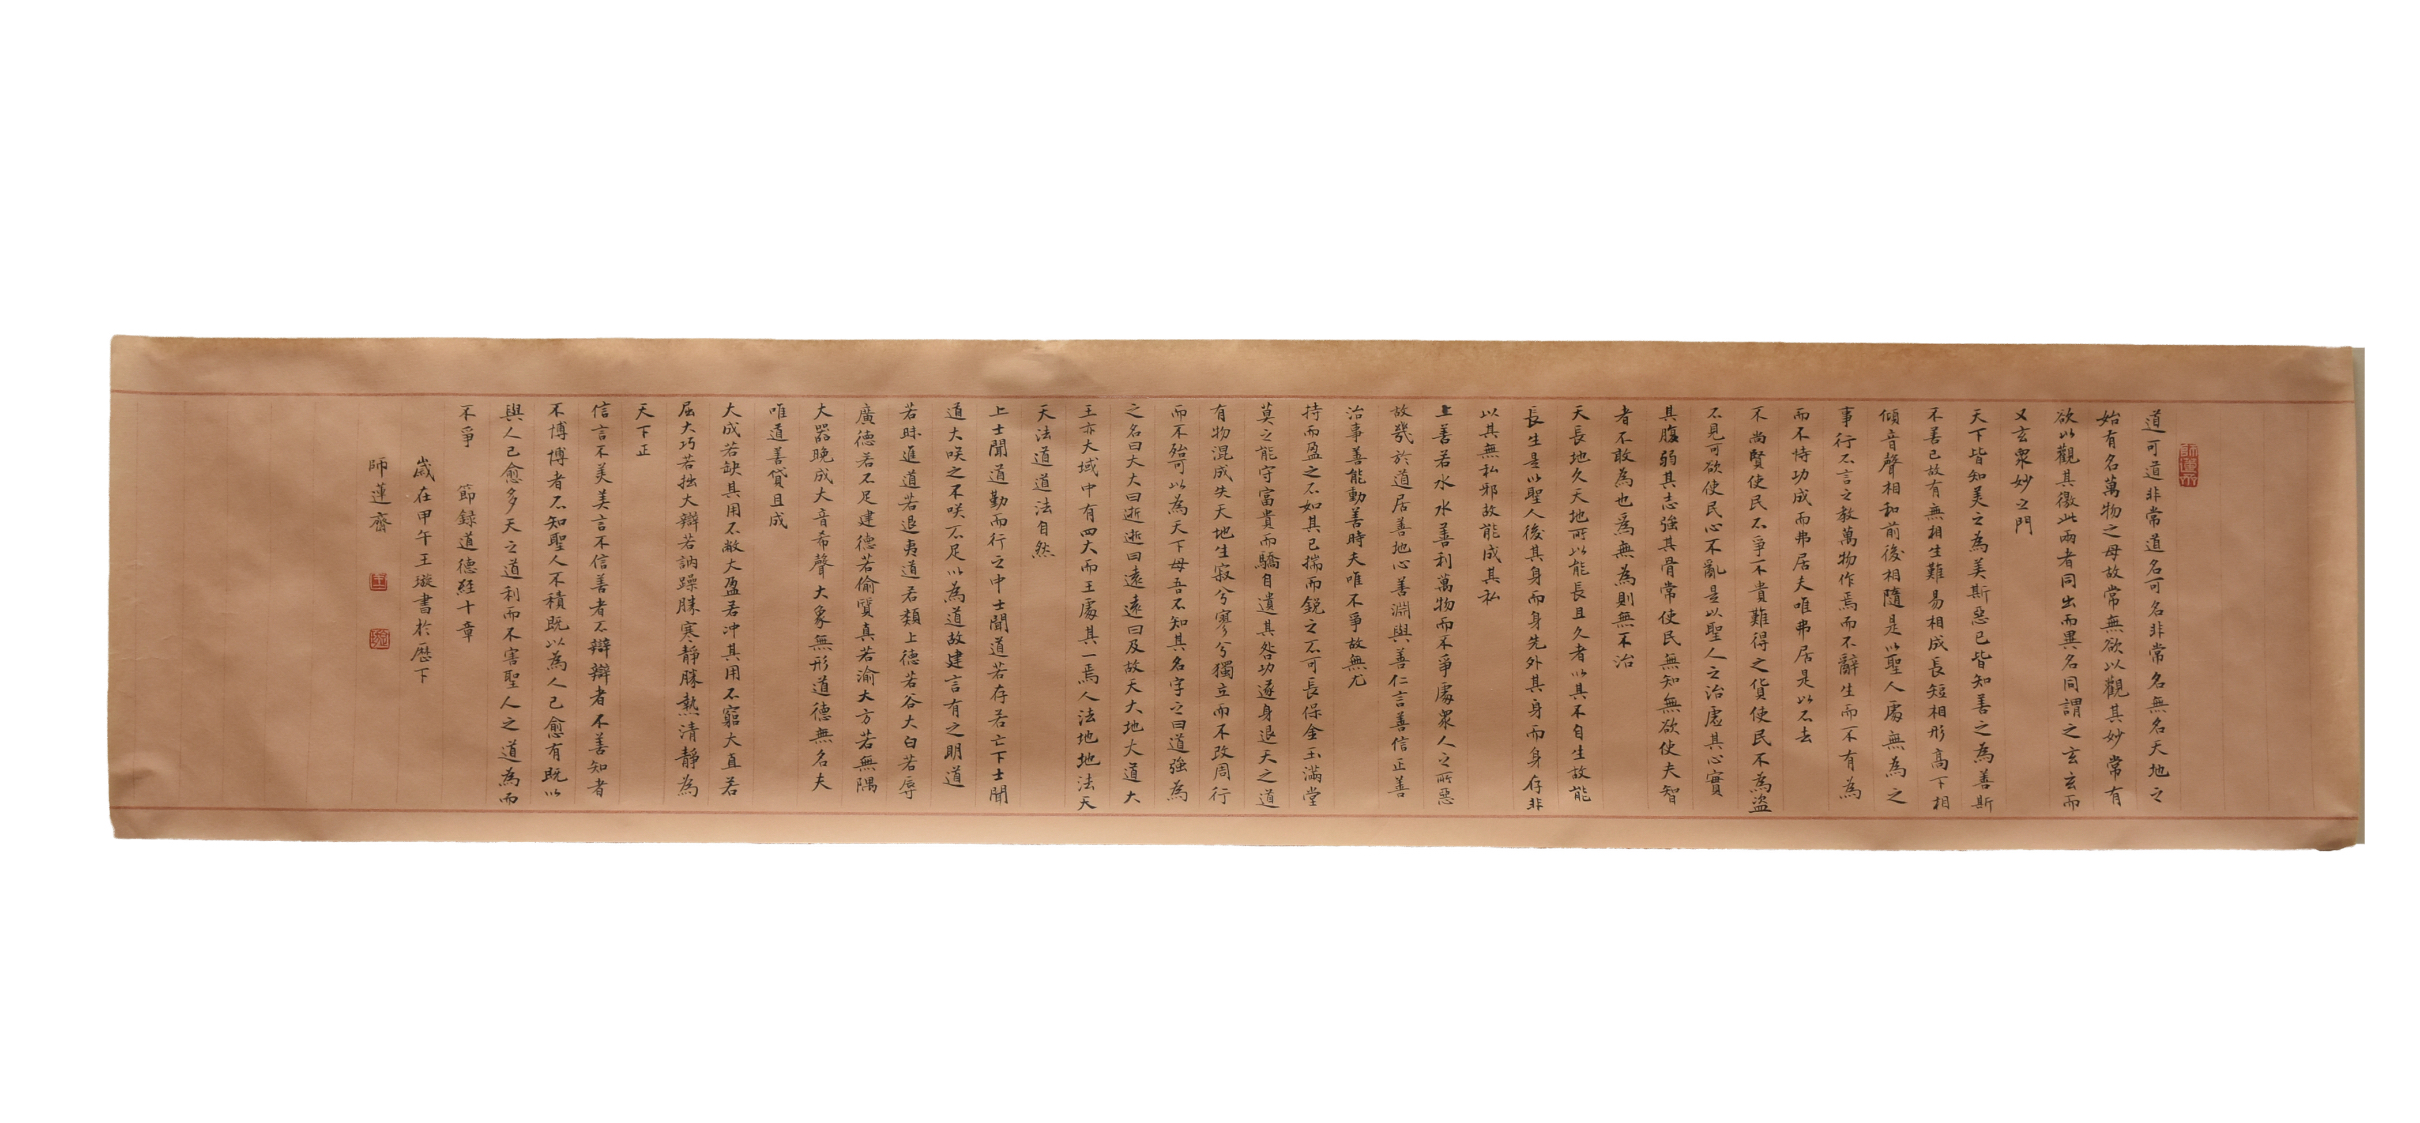 師蓮齋
道可道非常道名可名非常名無名天地之
始有名萬物之母故常無欲以觀其妙常有
欲以觀其徼此兩者同出而異名同謂之玄玄而
又玄眾妙之門
天下皆知美之為美斯惡已皆知善之為善斯
不善已故有無相生難易相成長短相形高下相
傾音聲相和前後相隨是以聖人處無為之
事行不言之教萬物作焉而不辭生而不有為
而不恃功成而弗居夫唯弗居是以不去
不尚賢使民不爭不貴難得之貨使民不為盜
不見可欲使民心不亂是以聖人之治虛其心實
其腹弱其志強其骨常使民無知無欲使夫智
者不敢為也爲無為則無不治
天長地久天地所以能長且久者以其不自生故能
長生是以聖人後其身而身先外其身而身存非
以其無私邪故能成其私
上善若水水善利萬物而不爭處眾人之所惡
故幾於道居善地心善淵與善仁言善信正善
治事善能動善時夫唯不爭故無尤
持而盈之不如其已揣而銳之不可長保金玉滿堂
莫之能守富貴而驕自遺其咎功遂身退天之道
有物混成失天地生寂兮寥兮獨立而不改周行
而不殆可以為天下母吾不知其名字之曰道強為
之名曰大大曰逝逝曰遠遠曰及故天大地大道大
王亦大域中有四大而王處其一焉人法地地法天
天法道道法自然
上士聞道勤而行之中士聞道若存若亡下士聞
道大咲之不咲不足以為道故建言有之明道
若昧進道若退夷道若類上德若谷大白若辱
廣德若不足建德若偷質真若渝大方若無隅
大器晚成大音希聲大象無形道德無名夫
唯道善貸且成
大成若缺其用不敝大盈若冲其用不窮大直若
屈大巧若拙大辯若訥躁勝寒靜勝熱清靜為
天下正
信言不美美言不信善者不辯辯者不善知者
不博博者不知聖人不積既以為人己愈有既以
與人己愈多天之道利而不害聖人之道為而
不爭 節録道德経十章
歲在甲午王璇書於歷下
師蓮齋
王
璇